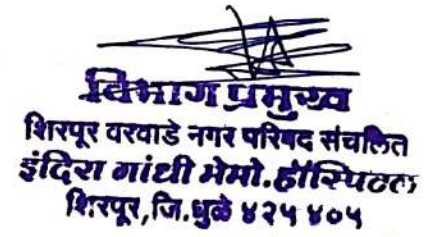 विभाग प्रमुख
शिरपूर वरवाडे नगर परिषद संचलित
इंदिरा गांधी मेमो. हॉस्पिटल
शिरपूर, जि.धुळे ४२५ ४०५